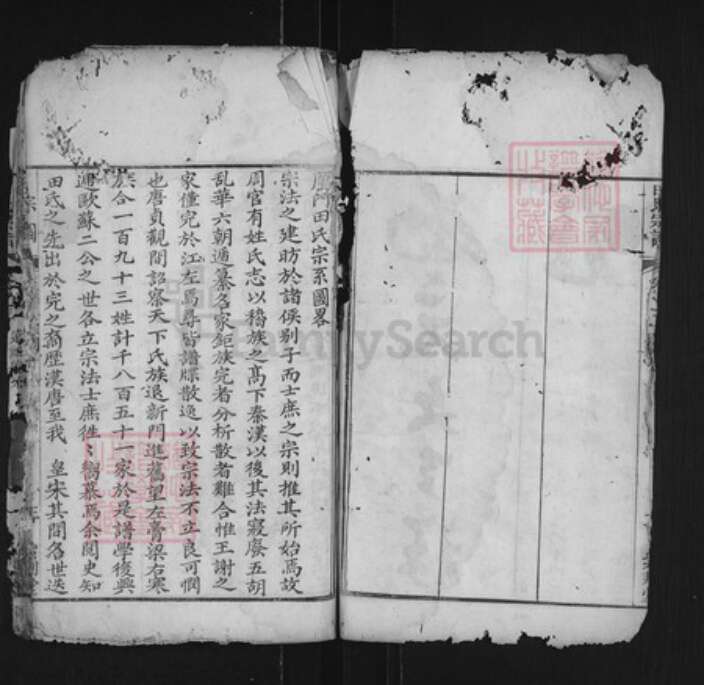 田氏宗系圖畧
宗法之建昉於諸侯别子而士庶之宗則推其所始焉故
周官有姓氏志以稽族之髙下秦漢以後其法寖廢五胡
亂華六朝遁纂名家鉅族完者分析散者難合惟王謝之
家僅完於江左焉尋皆譜牒散逸以致宗法不立良可憫
也唐貞觀間詔察天下氏族退新門進舊望左膏梁右寒
族合一百九十三姓計千八百五十一家於是譜學復興
迦歐蘇二公之世各立宗法士庶徃〻嚮慕焉余閲史知
田氏之先出於完之裔歴漢唐至我 皇宋其間名世迭
FamilySearch